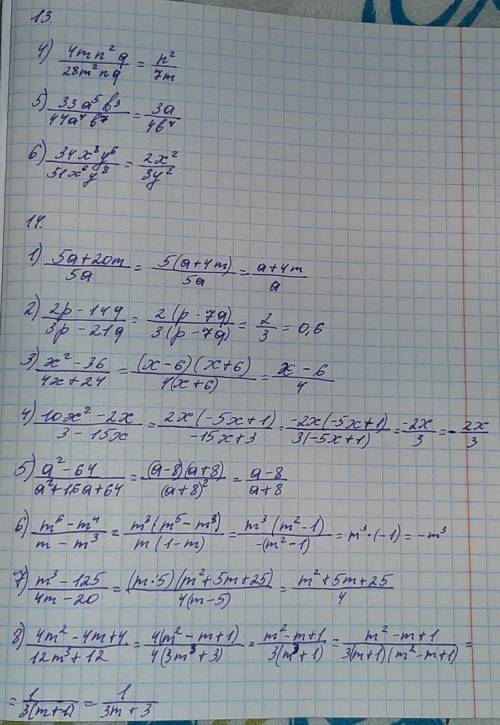 13.
4) 4mn²q/28m²nq = n²/7m
5) 33a⁵b³/44a⁴b⁷ = 3a/4b⁴
6) 34x⁸y⁶/51x⁶y⁸ = 2x²/3y²
14.
1) 5a+20m/5a = 5(a+4m)/5a = a+4m/a
2) 2p-14q/3p-21q = 2(p-7q)/3(p-7q) = 2/3 = 0,6
3) x²-36/4x+24 = (x-6)(x+6)/4(x+6) = x-6/4
4) 10x²-2x/3-15x = 2x(-5x+1)/-15x+3 = -2x(-5x+1)/3(-5x+1) = -2x/3 = -2x/3
5) a²-64/a²+16a+64 = (a-8)(a+8)/(a+8)² = a-8/a+8
6) m⁶-m⁴/m-m³ = m³(m⁵-m³)/m(1-m) = m³(m²-1)/-(m²-1) = m³·(-1) = -m³
7) m³-125/4m-20 = (m·5)(m²+5m+25)/4(m-5) = m²+5m+25/4
8) 4m²-4m+4/12m³+12 = 4(m²-m+1)/4(3m³+3) = m²-m+1/3(m³+1) = m²-m+1/3(m+1)(m²-m+1) =
= 1/3(m+1) = 1/3m+3